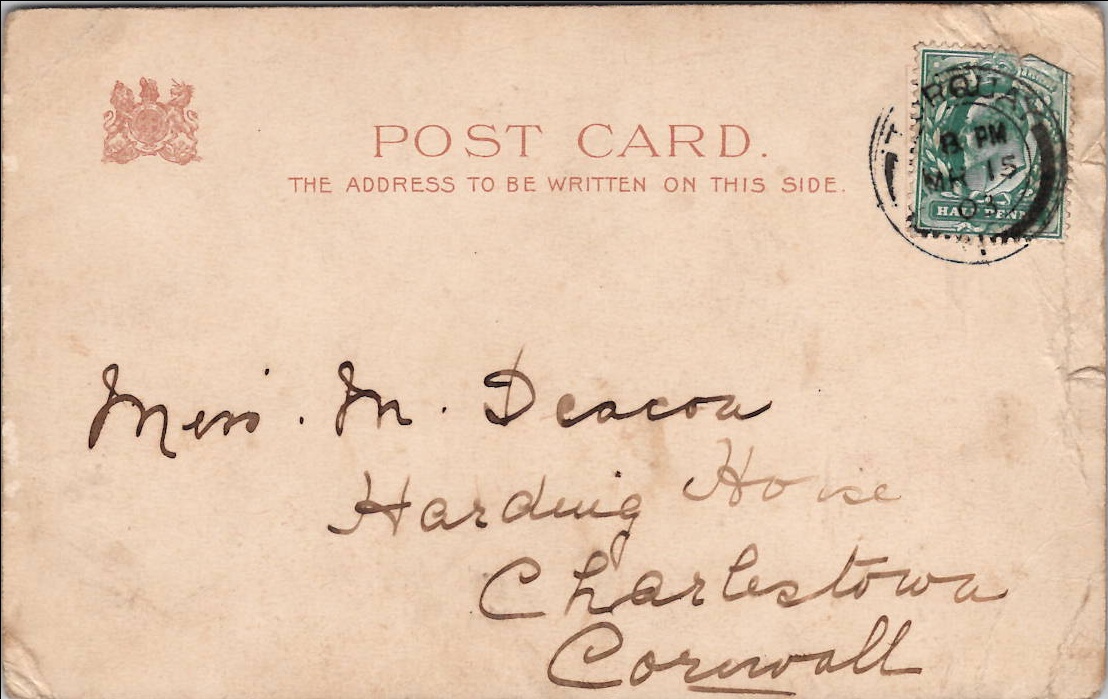 POST CARD.
THE ADDRESS TO BE WRITTEN ON THIS SIDE.
TORQUAY
8 PM
MR 15
03
HALFPENNY
Miss. M. Deacon
Harding House
Charlestown
Cornwall